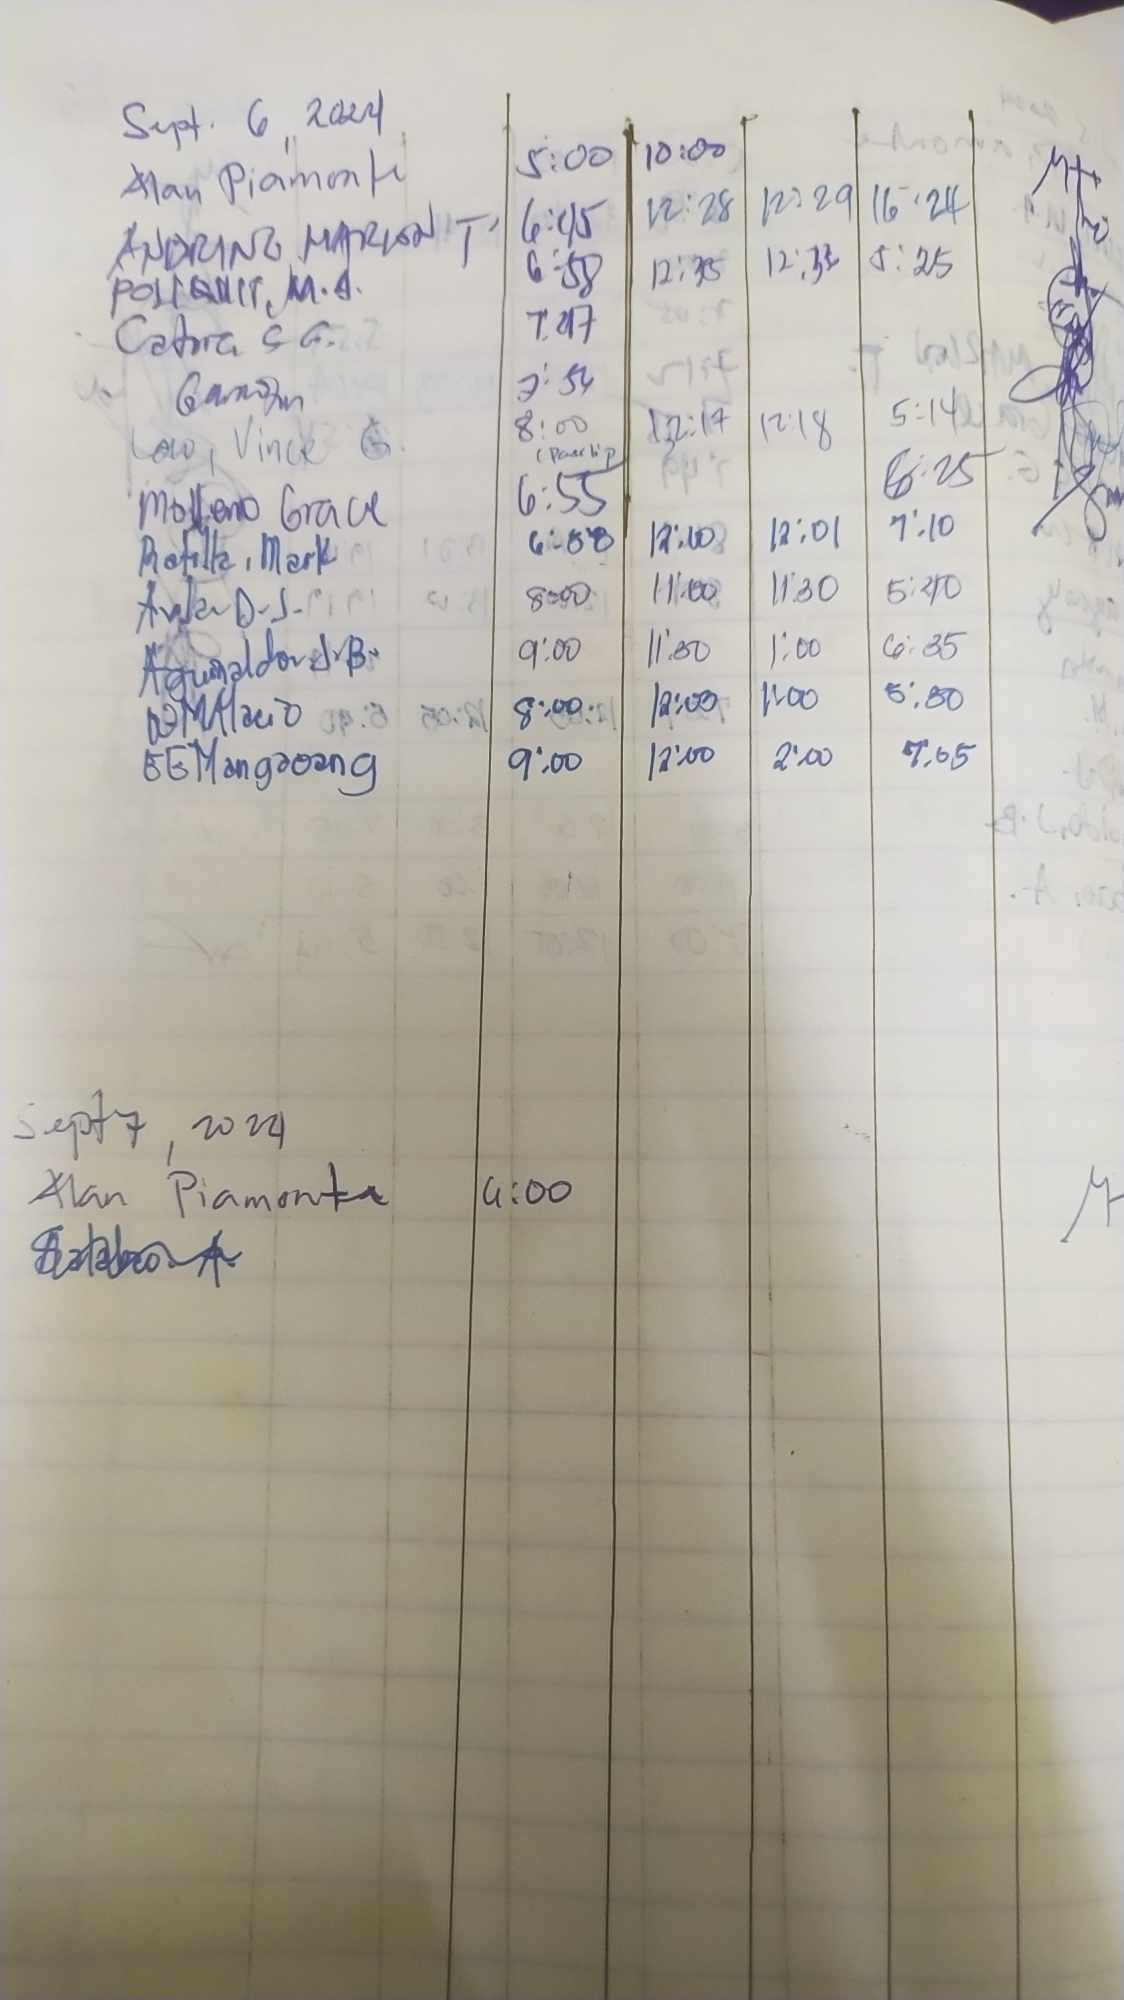 Sept. 6, 2024
Alan Piamonte 5:00 10:00
ANDRINO MARLON T 6:45 12:28 12:29 16:24
POLIQUIT, M.A. 6:58 12:35 12:33 5:25
S G. 7:47
7:54
Vince G. 8:00 12:17 12:18 5:14
Grace 6:55 6:25
Mark 12:00 12:01 7:10
D.J. 8:00 11:00 11:30 5:40
Aguinaldo J.B. 9:00 11:30 1:00 6:35
8:00 12:00 1:00 5:30
EGMangaoang 9:00 12:00 2:00 7:05
Sept 7, 2024
Alan Piamonte 4:00